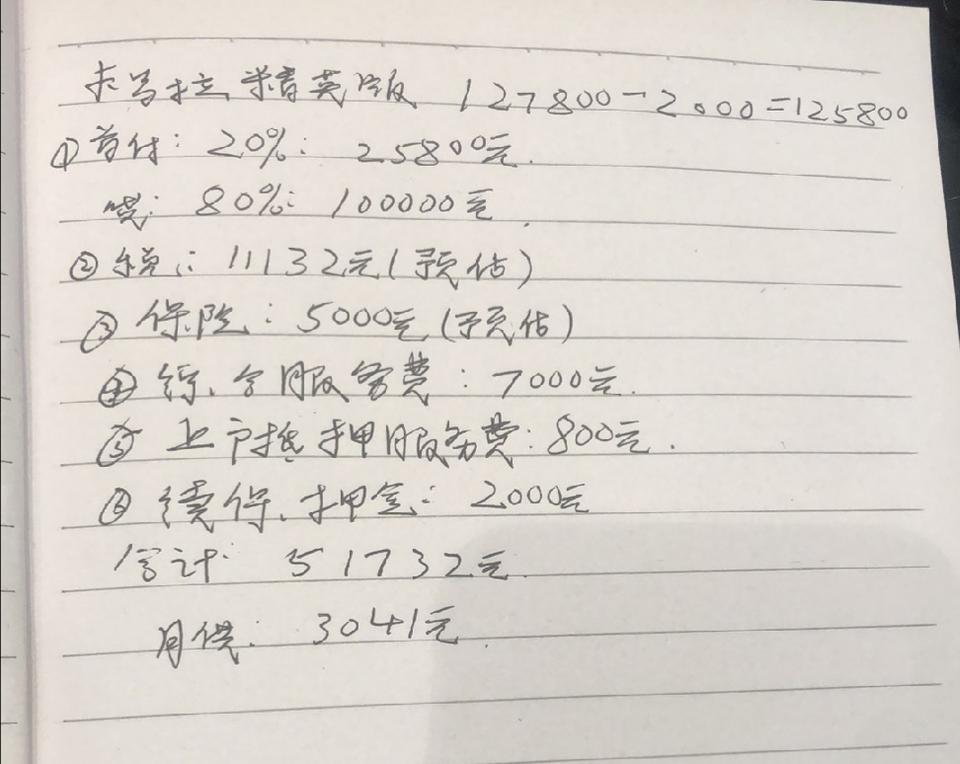 卡罗拉精英版 127800-2000=125800
①首付: 20%: 25800元.
贷: 80%: 100000元.
②税: 11132元(预估)
③保险: 5000元(预估)
④综合服务费: 7000元.
⑤上户抵押服务费: 800元.
⑥续保押金: 2000元
合计: 51732元.
月供: 3041元.